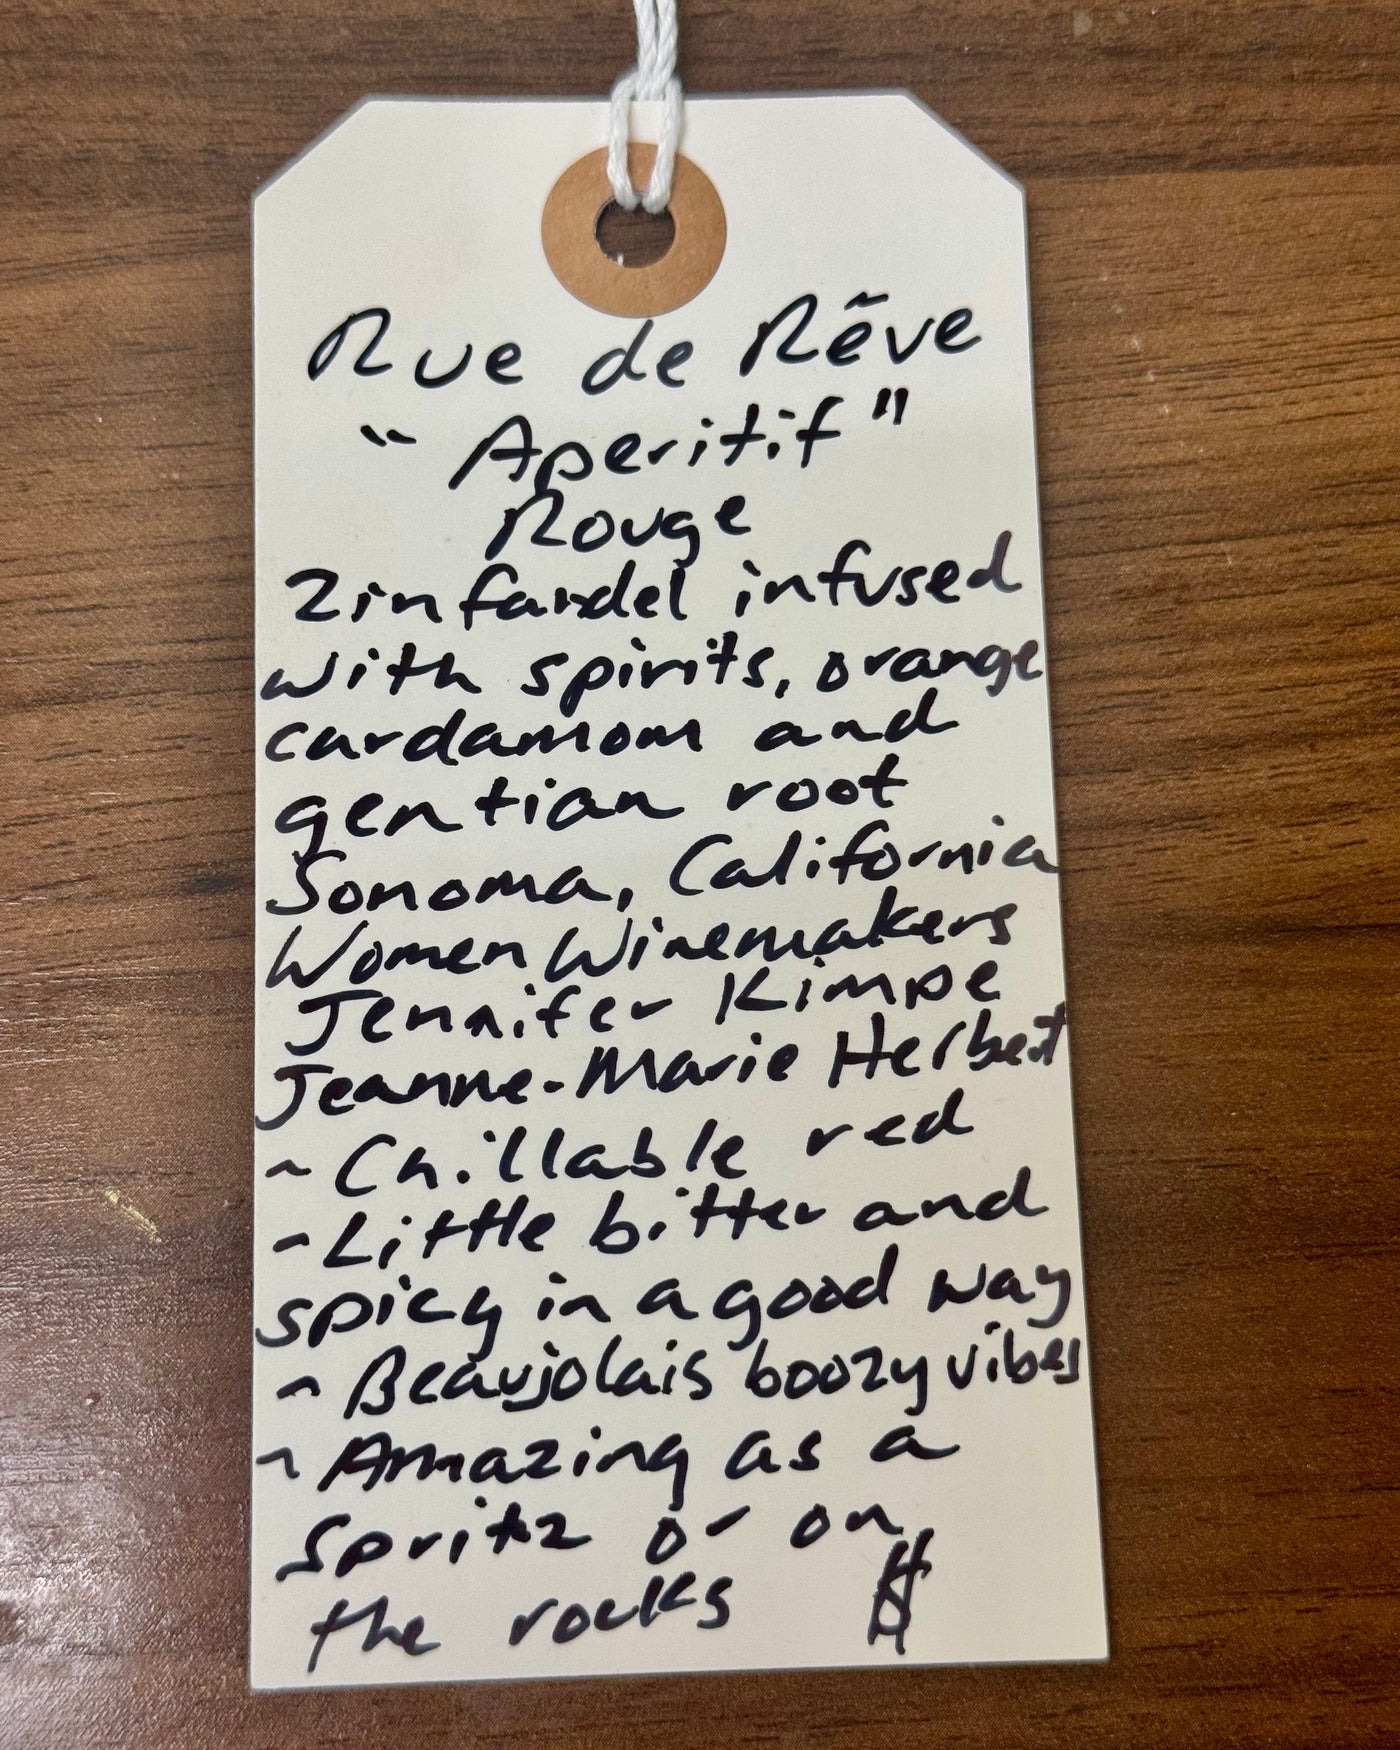 Rue de Rêve
"Aperitif"
Rouge
Zinfandel infused
with spirits, orange
cardamom and
gentian root
Sonoma, California
Women Winemakers
Jennifer Kimpe
Jeanne-Marie Herbert
~ Chillable red
~ Little bitter and
spicy in a good way
~ Beaujolais boozy vibes
~ Amazing as a
Spritz or on
the rocks